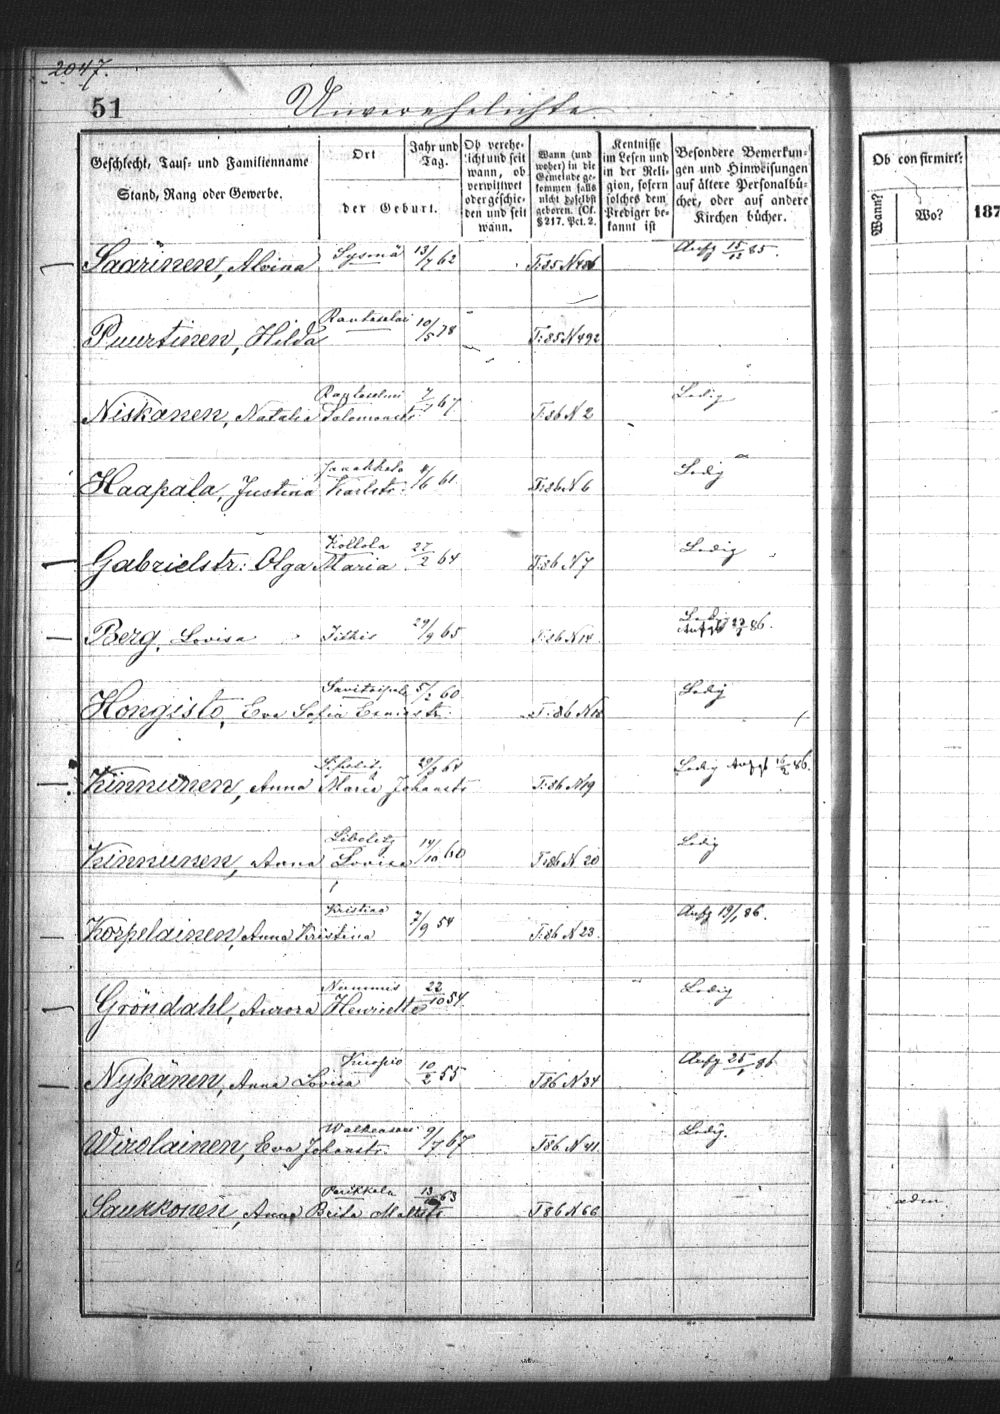 2047.
51
Unverehelichte
Geschlecht, Tauf- und Familienname
Stand, Rang oder Gewerbe.
Ort
der Geburt.
Jahr und
Tag.
Ob verehe-
licht und seit
wann, ob
verwittwet
oder geschie-
den und seit
wann.
Wann (und
woher) in die
Gemeinde ge-
kommen falls
nicht daselbst
geboren. (Cf.
§ 217. Pct. 2.
Kentnisse
im Lesen und
in der Reli-
gion, sofern
solches dem
Prediger be-
kannt ist
Besondere Bemerkun-
gen und Hinweisungen
auf ältere Personalbü-
cher, oder auf andere
Kirchen bücher.
Ob confirmirt:
Wann?
Wo?
187
Saarinen, Alvina Sysmä 13/7 62 T:85 N486 Aufg 15/12 85.
Puurtinen, Hilda Rantasalmi 10/5 78 T:85 N492
Niskanen, Natalia Salomonstr 67 T:86 N 2 Ledig
Haapala, Justina Karlstr: Janakkala 4/6 61 T:86 N 6 Ledig
Gabrielstr: Olga Maria 27/2 64 T:86 N7 Ledig
Berg, Lovisa 29/9 65 T:86 N14. Ledig 86.
Hongisto, Eva Sofia Savitaipale 5/2 60 T:86 Ledig
Kinnunen, Anna Maria Johanstr T:86 N19 Ledig 86.
Kinnunen, Anna Lovisa Libelitz 14/10 60 T:86 N 20 Ledig
Korpelainen, Anna Kristina Kristina 7/9 54 T:86 N 23. Aufg 19/1 86.
Gröndahl, Aurora Henriette Nummis 22/10 54. Ledig
Nykänen, Anna Lovisa Kuopio 10/2 55 T86 N34 Aufg 86
Wirolainen, Eva Johanstr. Walkeasaari 9/7 67 T86. N 41. Ledig.
Saukkonen, Anna Brita Parikkala 13 63 T86 N66